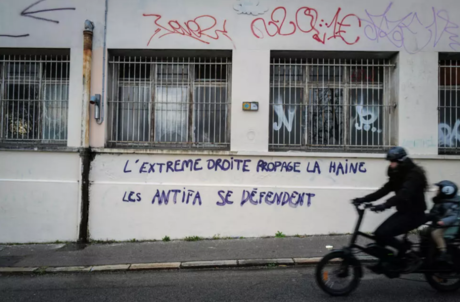 L'EXTREME DROITE PROPAGE LA HAINE
LES ANTIFA SE DÉFENDENT